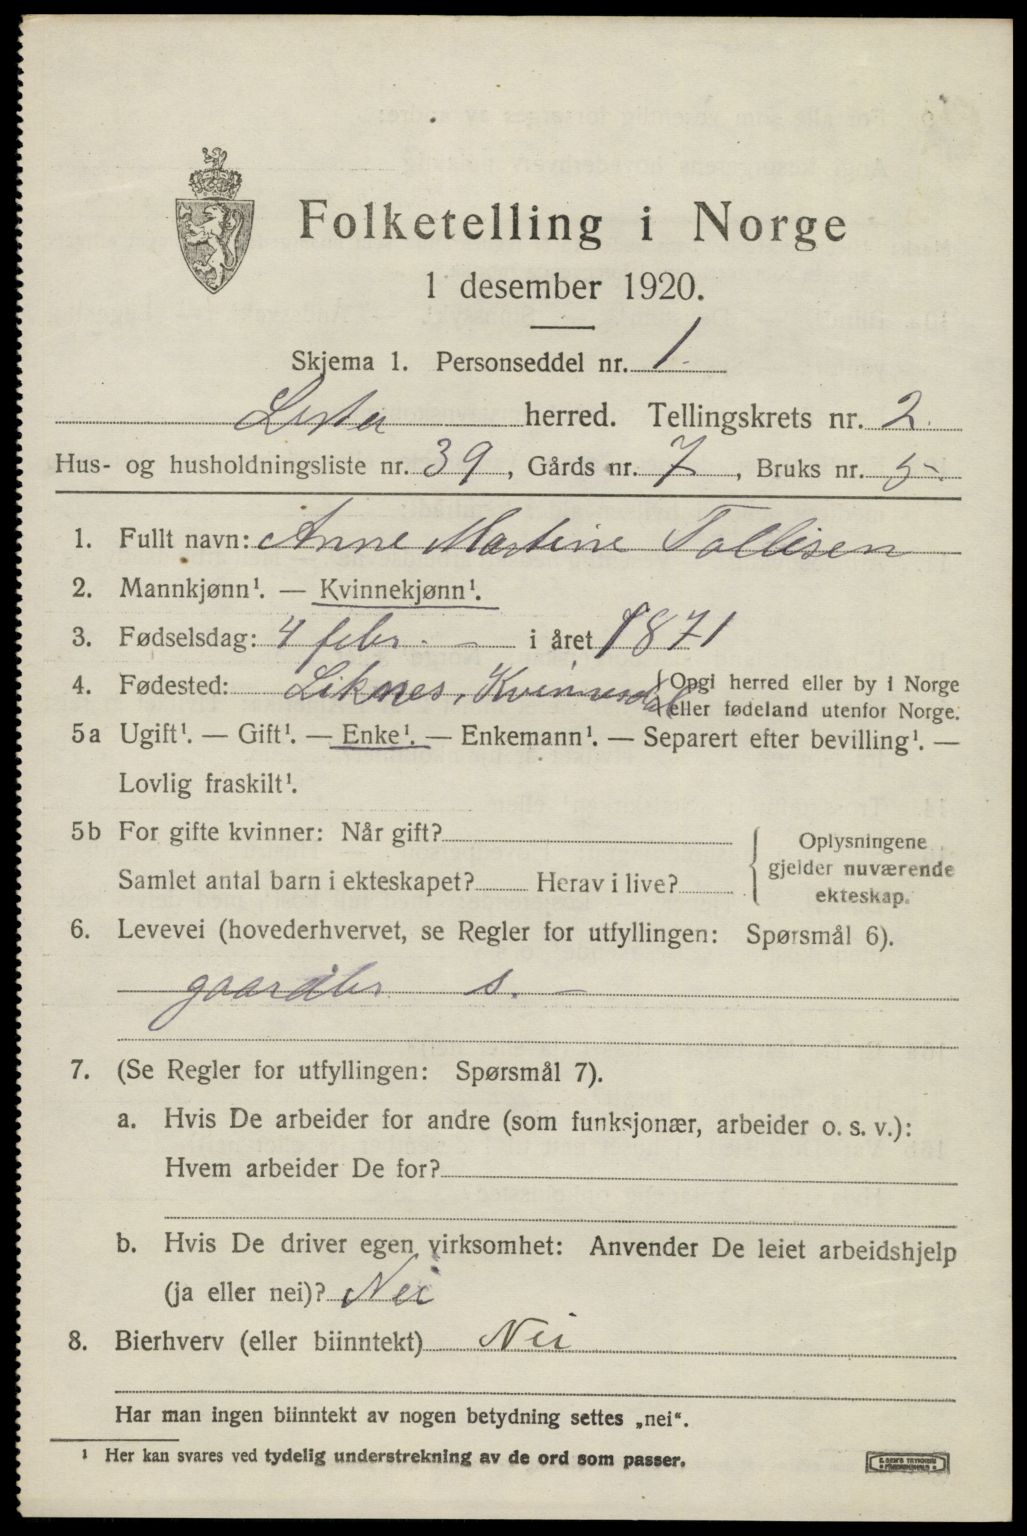 Folketelling i Norge
1 desember 1920.
Skjema 1. Personseddel nr. 1.
Lista herred. Tellingskrets nr. 2.
Hus- og husholdningsliste nr. 39, Gårds nr. 7, Bruks nr. 5.
1. Fullt navn: Anne Martine Tollisen
2. Mannkjønn¹. — Kvinnekjønn¹.
3. Fødselsdag: 4 febr. — i året 1871
4. Fødested: Liknes, Kvinnesdal (Opgi herred eller by i Norge
eller fødeland utenfor Norge.
5a Ugift¹. — Gift¹. — Enke¹. — Enkemann¹. — Separert efter bevilling¹. —
Lovlig fraskilt¹.
5b For gifte kvinner: Når gift?
Samlet antal barn i ekteskapet? Herav i live?
Oplysningene
gjelder nuværende
ekteskap.
6. Levevei (hovederhvervet, se Regler for utfyllingen: Spørsmål 6).
gaardbr s. —
7. (Se Regler for utfyllingen: Spørsmål 7).
a. Hvis De arbeider for andre (som funksjonær, arbeider o. s. v.):
Hvem arbeider De for?
b. Hvis De driver egen virksomhet: Anvender De leiet arbeidshjelp
(ja eller nei)? Nei
8. Bierhverv (eller biinntekt) Nei
Har man ingen biinntekt av nogen betydning settes „nei".
¹ Her kan svares ved tydelig understrekning av de ord som passer.